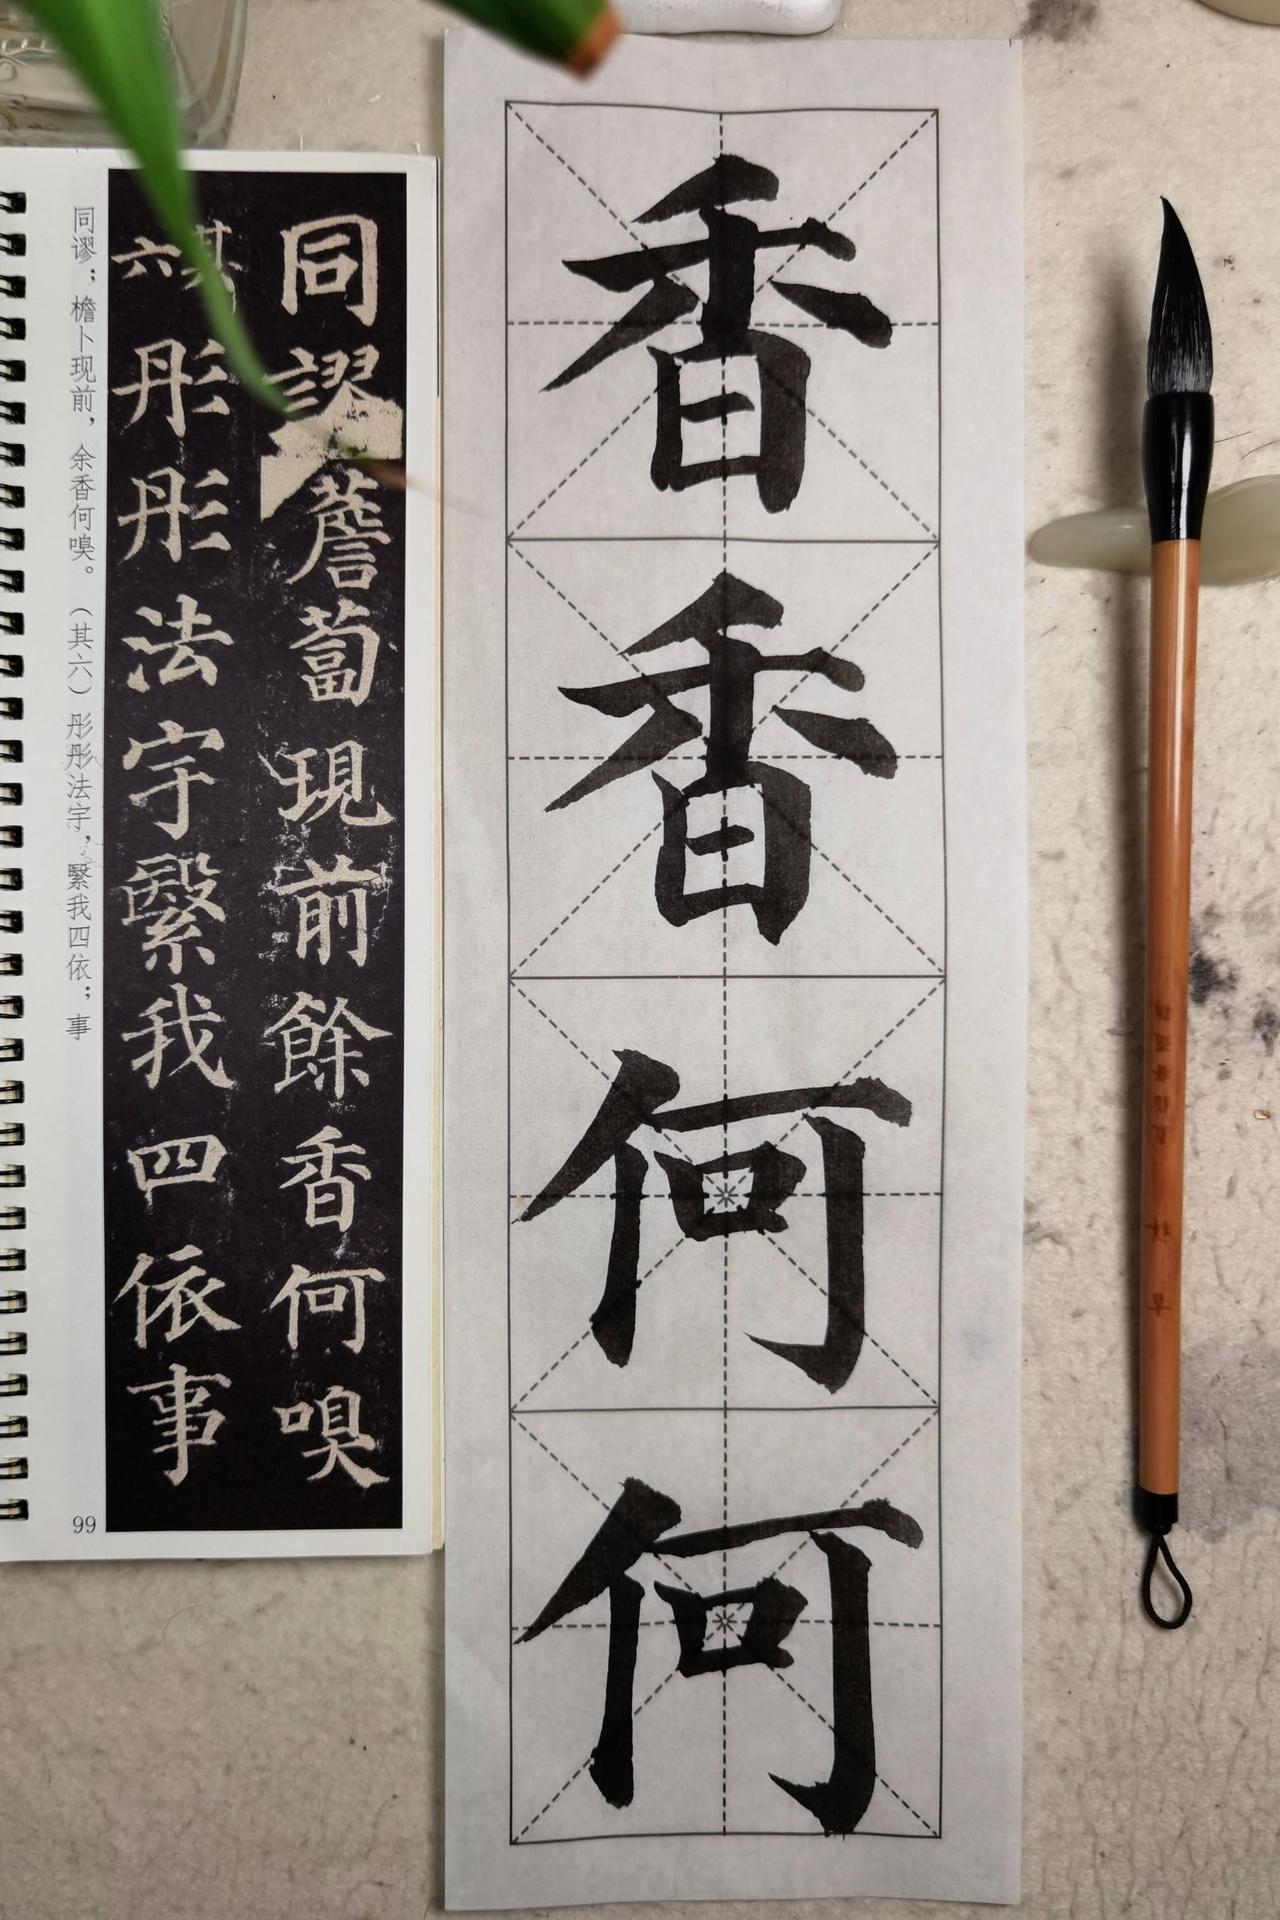 同謬薝蔔現前餘香何嗅
其六
彤彤法宇繄我四依事
同谬；檐卜现前，余香何嗅。（其六）彤彤法宇，繄我四依；事
99
香香何何